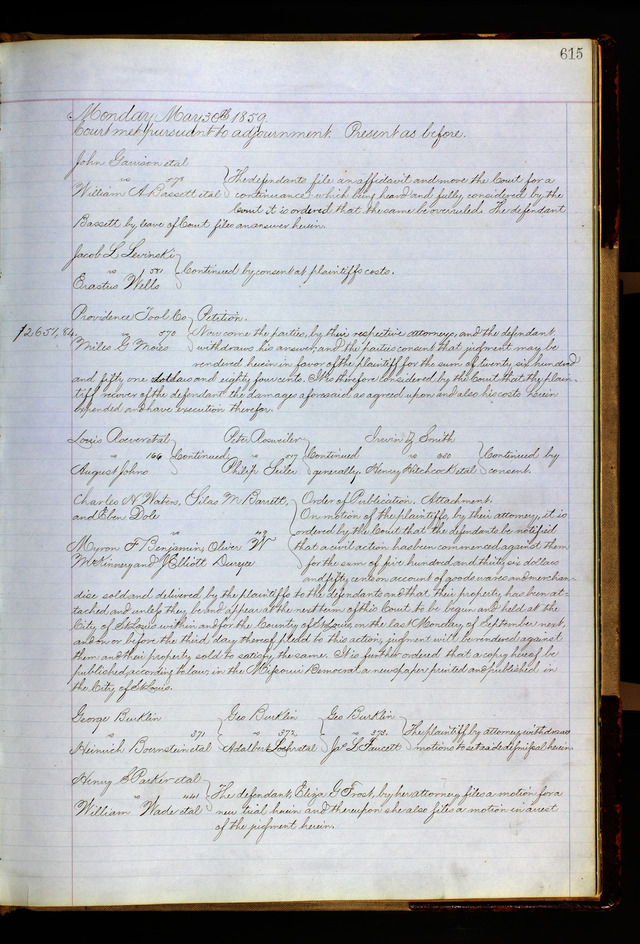 615
Monday May 30th 1859.
Court met pursuant to adjournment. Present as before.
John Garrison etal
vs 578
William A. Bassett etal
The defendants file an affidavit and move the Court for a
continuance which being heard and fully considered by the
Court it is ordered that the same be overruled. The defendant
Bassett by leave of Court files an answer herein.
Jacob L Levinski
vs 581
Erastus Wells
Continued by consent at plaintiffs costs.
Providence Tool Co
$2651.84. vs 570
Miles G. Moies
Petition.
Now come the parties, by their respective attorneys, and the defendant,
withdraws his answer, and the parties consent that judgment may be
rendered herein in favor of the plaintiff for the sum of twenty six hundred
and fifty one dollars and eighty four cents. It is therefore considered by the Court that the plain-
tiff recover of the defendant the damages aforesaid as agreed upon and also his costs herein
expended and have execution therefor.
Louis
vs 166
August Johns
Continued
Peter Rosweiler
vs 517
Philip Seiler
Continued
generally.
Irwin Z Smith
vs 650
Henry Hitchcock etal
Continued by
consent.
Charles N. Waters, Silas M. Barrett,
and Eben Dole
vs
Myron F. Benjamin, Oliver W
McKinney and J Elliott Duryea
Order of Publication. Attachment.
On motion of the plaintiffs, by their attorney, it is
ordered by the Court that the defendants be notified
that a civil action has been commenced against them
for the sum of five hundred and thirty six dollars
and fifty cents on account of goods wares and merchan-
dise sold and delivered by the plaintiffs to the defendants and that their property has been at-
tached and unless they be and appear at the next term of this Court, to be begun and held at the
City of St Louis within and for the County of St Louis, on the last Monday of September next,
and on or before the third day thereof plead to this action, judgment will be rendered against
them and their property sold to satisfy the same. It is further ordered that a copy hereof be
published, according to law, in the Missouri Democrat a newspaper printed and published in
the City of St Louis.
George Burklin
vs 371
Heinrich Boernstein etal
Geo Burklin
vs 372.
Adalbert etal
Geo Burklin
vs 373.
Jas. L. Faucett
The plaintiff by attorney, withdraws
motions to set aside dismissal herein.
Henry B. Parker etal
vs 441
William Wade etal
The defendant, Eliza G Frost, by her attorney, files a motion for a
new trial herein and thereupon she also files a motion in arrest
of the judgment herein.